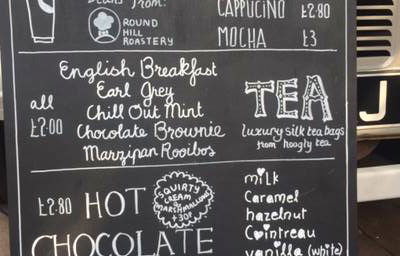 Beans from:
ROUND
HILL
ROASTERY
CAPPUCINO £2.80
MOCHA £3
all
£2.00
English Breakfast
Earl Grey
Chill Out Mint
Chocolate Brownie
Marzipan Rooibos
TEA
luxury silk tea bags
from hoogly tea
£2.80 HOT
CHOCOLATE
SQUIRTY
CREAM
&
MARSHMALLOWS
+30P
milk
Caramel
hazelnut
Cointreau
vanilla (white)
J